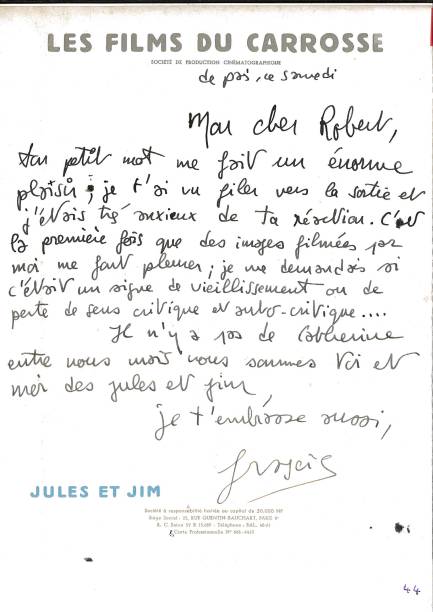 LES FILMS DU CARROSSE
SOCIÉTÉ DE PRODUCTION CINÉMATOGRAPHIQUE
ce samedi
Mon cher Robert,
ton petit mot me fait un énorme
plaisir ; je t'ai vu filer vers la sortie et
j'étais très anxieux de ta réaction. C'est
la première fois que des images filmées par
moi me font pleurer ; je me demandais si
c'était un signe de vieillissement ou de
perte de sens critique et auto-critique....
Il n'y a pas de Catherine
entre nous mais nous sommes toi et
moi des jules et jim,
je t'embrasse aussi,
JULES ET JIM
Société à responsabilité limitée au capital de 20.000 NF
Siège Social : 25, RUE QUENTIN-BAUCHART, PARIS 8e
R. C. Seine 57 B 15.689 - Téléphone : BAL.
Carte Professionnelle N°
44